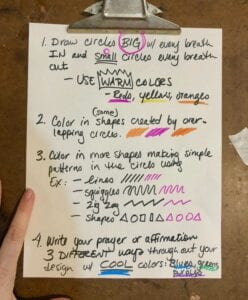 1. Draw circles BIG w/ every breath
IN and small circles every breath
out
- USE WARM COLORS
- Reds, yellows, oranges
(same)
2. Color in shapes created by over-
lapping circles.
3. Color in more shapes making simple
patterns in the circles using
Ex: - lines
- squiggles
- zig zag
- shapes
4. Write your prayer or affirmation
3 DIFFERENT ways throughout your
design w/ COOL colors: Blues, greens
purples